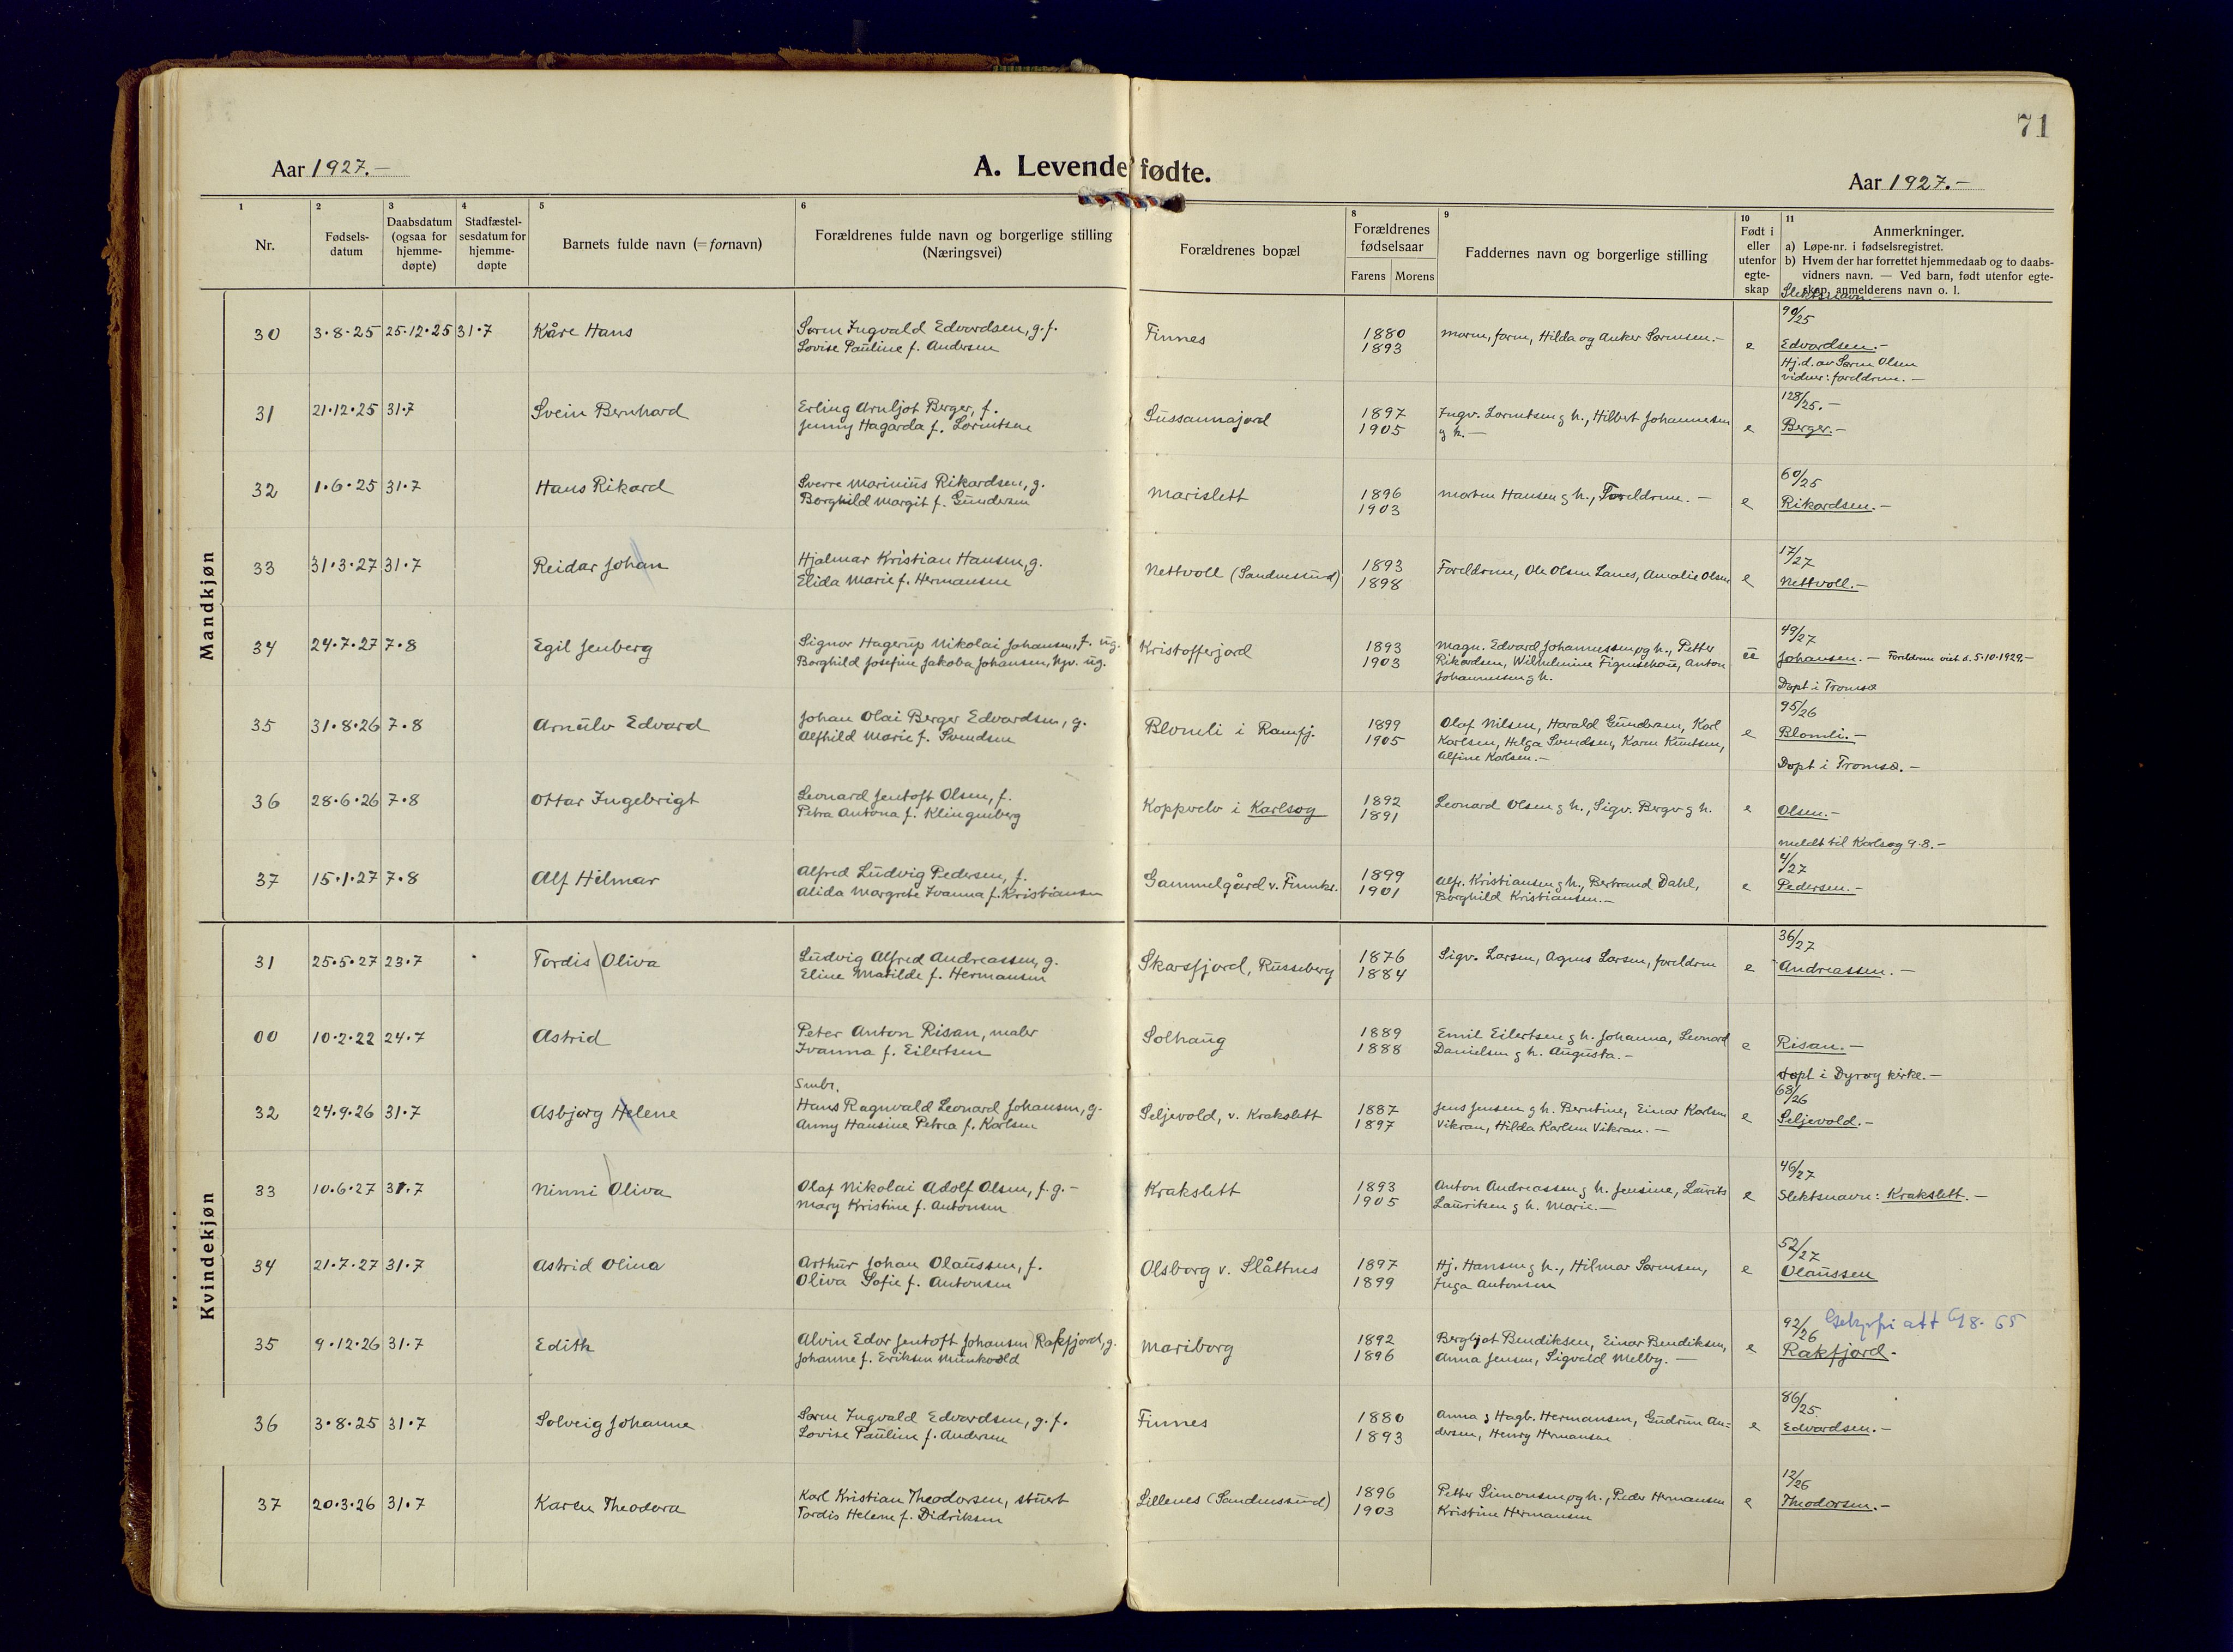 71
Aar 1927.-
A. Levende fødte.
Aar 1927.-
1 2 3 4 5 6 8 9 10 11
Nr.
Fødsels-
datum
Daabsdatum
(ogsaa for
hjemme-
døpte)
Stadfæstel-
sesdatum for
hjemme-
døpte
Barnets fulde navn (= fornavn)
Forældrenes fulde navn og borgerlige stilling
(Næringsvei)
Forældrenes bopæl
Forældrenes
fødselsaar
Farens Morens
Faddernes navn og borgerlige stilling
Født i
eller
utenfor
egte-
skap
Anmerkninger.
a) Løpe-nr. i fødselsregistret.
b) Hvem der har forrettet hjemmedaab og to daabs-
vidners navn. — Ved barn, født utenfor egte-
skap, anmelderens navn o. l.
Slektsnavn.-
Mandkjøn
30 3.8.25 25.12.25 31.7 Kåre Hans
Søren Ingvald Edvardsen, g.f.
Lovise Pauline f. Andersen
Finnes
1880
1893
Moren, faren, Hilda og Anker Sørensen.-
e
90/25
Edvardsen.-
Hj.d. av Søren Olsen
vidner: foreldrene.-
31 21.12.25 31.7 Svein Bernhard
Erling Arnljot Berger, f.
Jenny Hagarda f. Lorentsen
Sussannajord
1897
1905
Ingv. Lorentsen g h., Hilbert Johannesen
g h.-
e
128/25.-
Berger.-
32 1.6.25 31.7 Hans Rikard
Sverre Marinius Rikardsen, g.
Borghild Margit f. Gundersen
Marislett
1896
1903
Morten Hansen g h., Foreldrene.-
e
60/25
Rikardsen.-
33 31.3.27 31.7 Reidar Johan
Hjalmar Kristian Hansen, g.
Elida Marie f. Hermansen
Nettvoll (Sandnessund)
1893
1898
Foreldrene, Ole Olsen Lanes, Amalie Olsen
e
17/27
Nettvoll.-
34 24.7.27 7.8 Egil Jenberg
Signor Hagerup Nikolai Johansen, f. ug.
Borghild Josefine Jakoba Johansen, hjv. ug.
Kristofferjord
1893
1903
Magn. Edvard Johannessen og h., Petter
Rikardsen, Wilhelmine Figenschau, Anton
Johannessen g h.
ue
49/27
Johansen.- Foreldrene viet d. 5.10.1929.-
Døpt i Tromsø
35 31.8.26 7.8 Arnulv Edvard
Johan Olai Berger Edvardsen, g.
Alfhild Marie f. Svendsen
Blomli i Ramfj.
1899
1905
Olaf Nilsen, Harald Gundersen, Karl
Karlsen, Helga Svendsen, Karen Knutsen,
Alfine Karlsen.-
e
95/26
Blomli.-
Døpt i Tromsø.-
36 28.6.26 7.8 Ottar Ingebrigt
Leonard Jentoft Olsen, f.
Petra Antona f. Klingenberg
Koppvelv i Karlsøy
1892
1891
Leonard Olsen g h., Sigv. Berger g h.
e
Olsen.-
meldt til Karlsøy 9.8.-
37 15.1.27 7.8 Alf Hilmar
Alfred Ludvig Pedersen, f.
Alida Margrete Ivanna f. Kristiansen
Gammelgård v. Finnkr.
1899
1901
Alfr. Kristiansen g h., Bertrand Dahl,
Borghild Kristiansen.-
e
4/27
Pedersen.-
Kvindekjøn
31 25.5.27 23.7 Tordis Oliva
Ludvig Alfred Andreassen, g.
Eline Matilde f. Hermansen
Skarsfjord, Russeberg
1876
1884
Sigv. Larsen, Agnes Larsen, foreldren
e
36/27
Andreassen.-
00 10.2.22 24.7 Astrid
Peter Anton Risan, maler
Ivanna f. Eilertsen
Solhaug
1889
1888
Emil Eilertsen g h. Johanna, Leonard
Danielsen g h. Augusta.-
e
Risan.-
døpt i Dyrøy kirke.-
32 24.9.26 31.7 Asbjørg Helene
Smbr.
Hans Ragnvald Leonard Johansen, g.
Anny Hansine Petrea f. Karlsen
Seljevold, v. Krakslett
1887
1897
Jens Jensen g h. Berntine, Einar Karlsen
Vikran, Hilda Karlsen Vikran.-
e
68/26
Seljevold.-
33 10.6.27 31.7 Ninni Oliva
Olaf Nikolai Adolf Olsen, f. g.-
Mary Kristine f. Antonsen
Krakslett
1893
1905
Anton Andreassen g h. Jensine, Laurits
Lauritsen g h. Marie.-
e
46/27
Slektsnavn: Krakslett.-
34 21.7.27 31.7 Astrid Olina
Arthur Johan Olaussen, f.
Oliva Sofie f. Antonsen
Olsborg v. Slåttnes
1897
1899
Hj. Hansen g h., Hilmar Sørensen,
Inga Antonsen
e
52/27
Olaussen
35 9.12.26 31.7 Edith
Alvin Edor Jentoft Johansen Rakfjord, g.
Johanne f. Eriksen Munkvold
Mariborg
1892
1896
Bergljot Bendiksen, Einar Bendiksen,
Anna Jensen, Sigvald Melby.-
e
92/26 att 98.65
Rakfjord.-
36 3.8.25 31.7 Solveig Johanne
Søren Ingvald Edvardsen, g.f.
Lovise Pauline f. Andersen
Finnes
1880
1893
Anna g Hagb. Hermansen, Gudrun An-
dersen, Henry Hermansen
e
86/25
Edvardsen.-
37 20.3.26 31.7 Karen Theodora
Karl Kristian Theodorsen, stuert
Tordis Helene f. Didriksen
Lillenes (Sandnessund)
1896
1903
Petter Simonsen og h., Peder Hermansen
Kristine Hermansen
e
12/26
Theodorsen.-